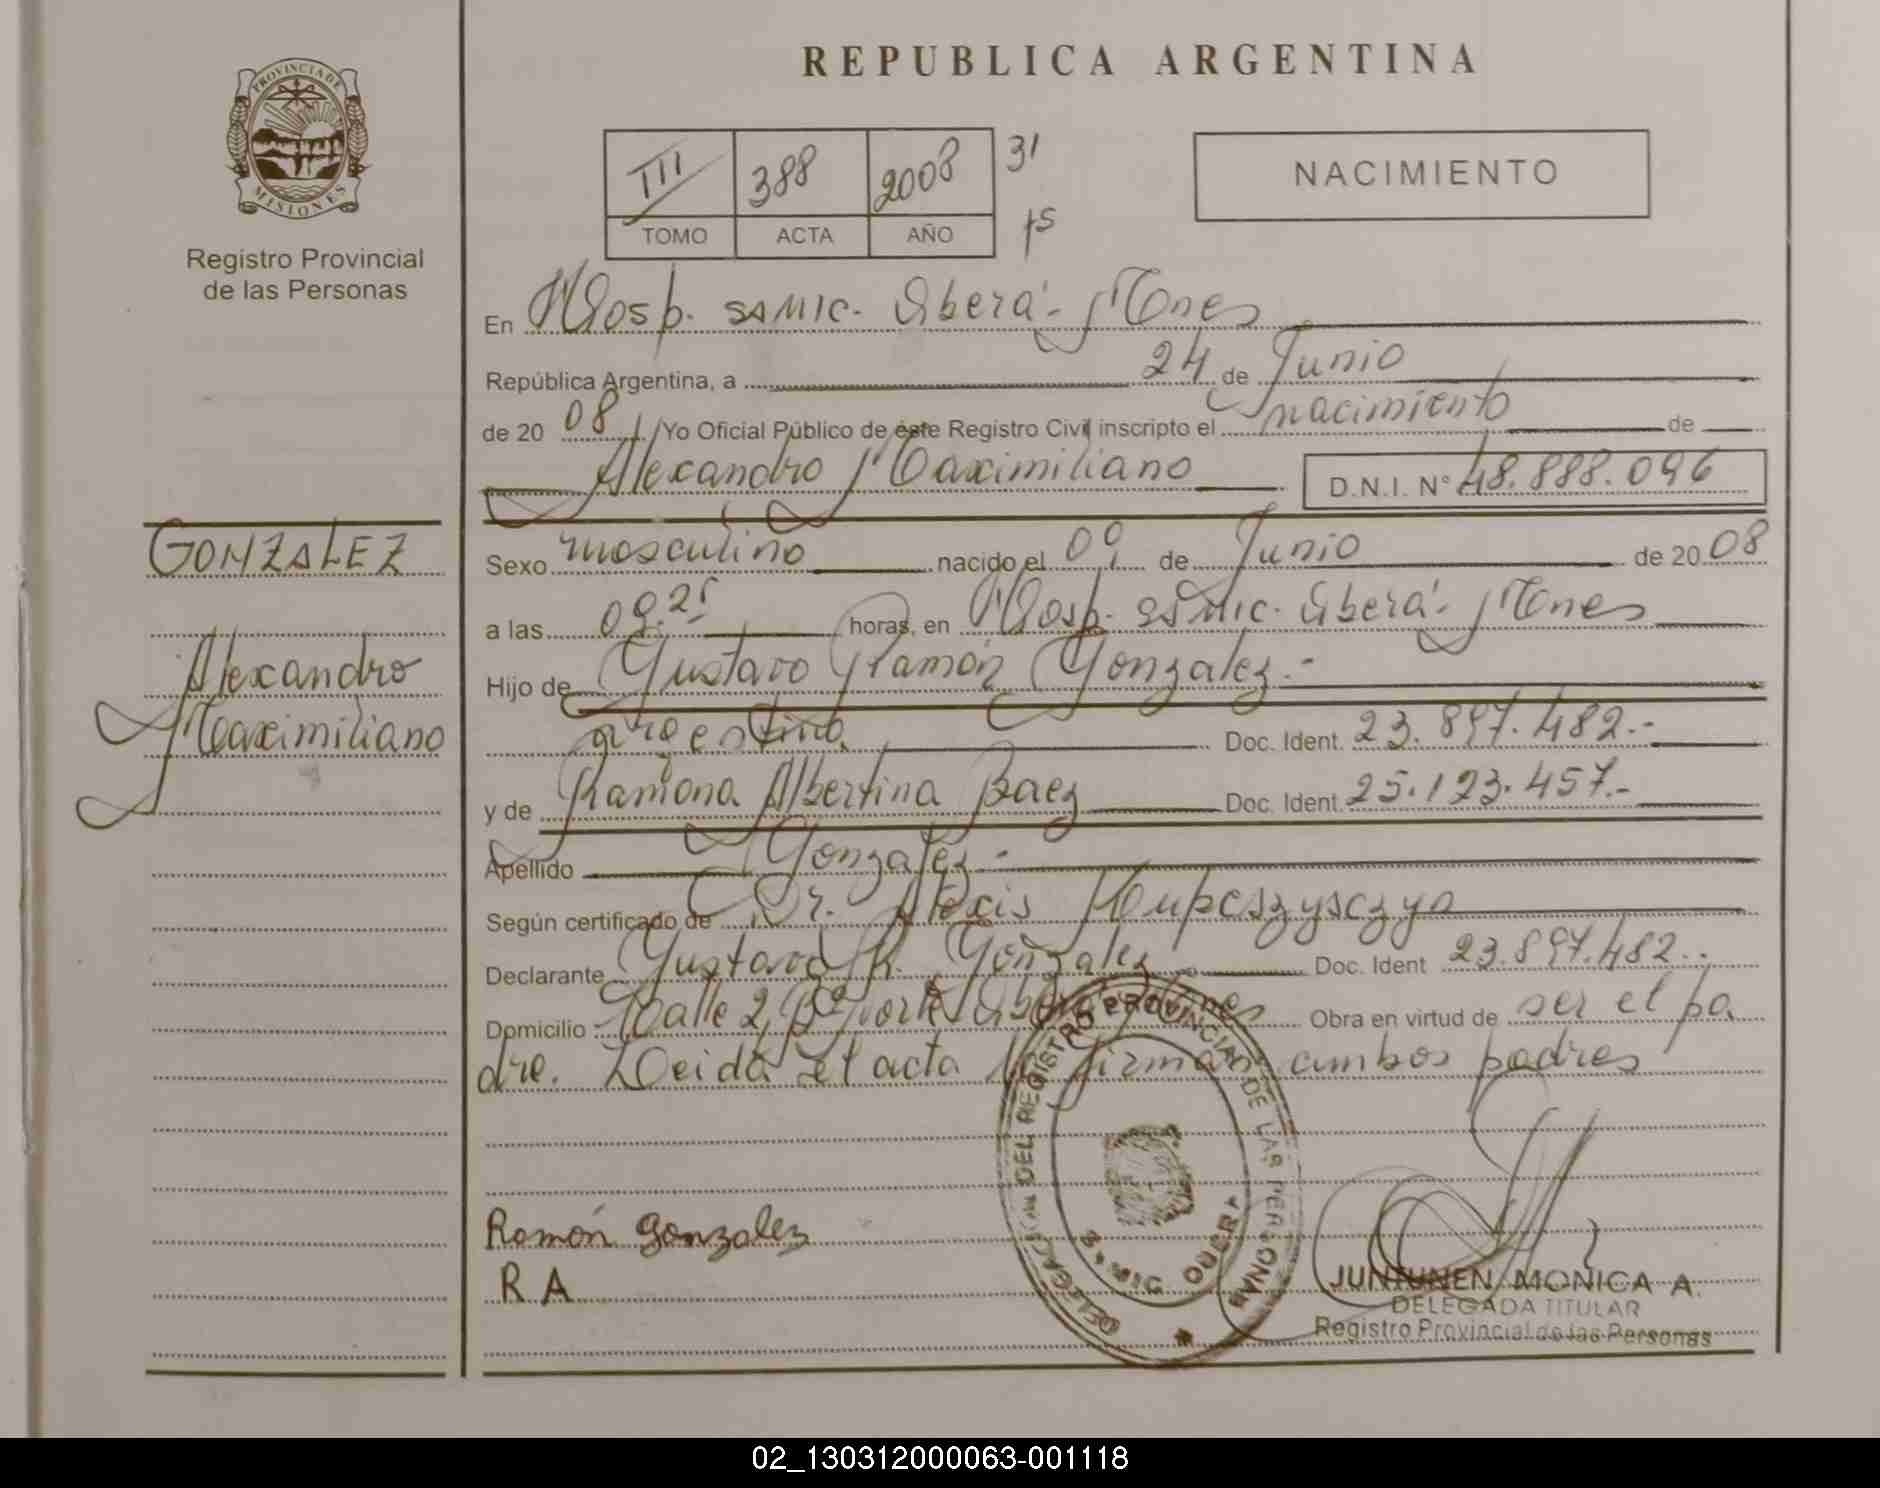 PROVINCIA DE
MISIONES
Registro Provincial
de las Personas
REPUBLICA ARGENTINA
III 388 2008 31
TOMO ACTA AÑO
NACIMIENTO
En Hosp. SAMIC. Oberá - Mones
República Argentina, a 24 de Junio
de 20 08 Yo Oficial Público de éste Registro Civil inscripto el nacimiento de
Alexandro Maximiliano D.N.I. N° 48.888.096
GONZALEZ
Alexandro
Maximiliano
Sexo masculino nacido el de Junio de 20 08
a las horas, en Hosp. SAMIC. Oberá - Mones
Hijo de Gustavo Ramón Gonzalez.-
argentino Doc. Ident. 23.897.482.-
y de Ramona Albertina Baez Doc. Ident. 25.123.457.-
Apellido Gonzalez -
Según certificado de Dr. Alexis
Declarante Gustavo R. Gonzalez Doc. Ident 23.897.482.-
Domicilio Calle 2, Obra en virtud de ser el pa
dre. Leida el acta la firman ambos padres
DELEGACION DEL REGISTRO PROVINCIAL DE LAS PERSONAS
Ramón gonzalez
R A
JUNTUNEN, MONICA A.
DELEGADA TITULAR
Registro Provincial de las Personas
02_130312000063-001118